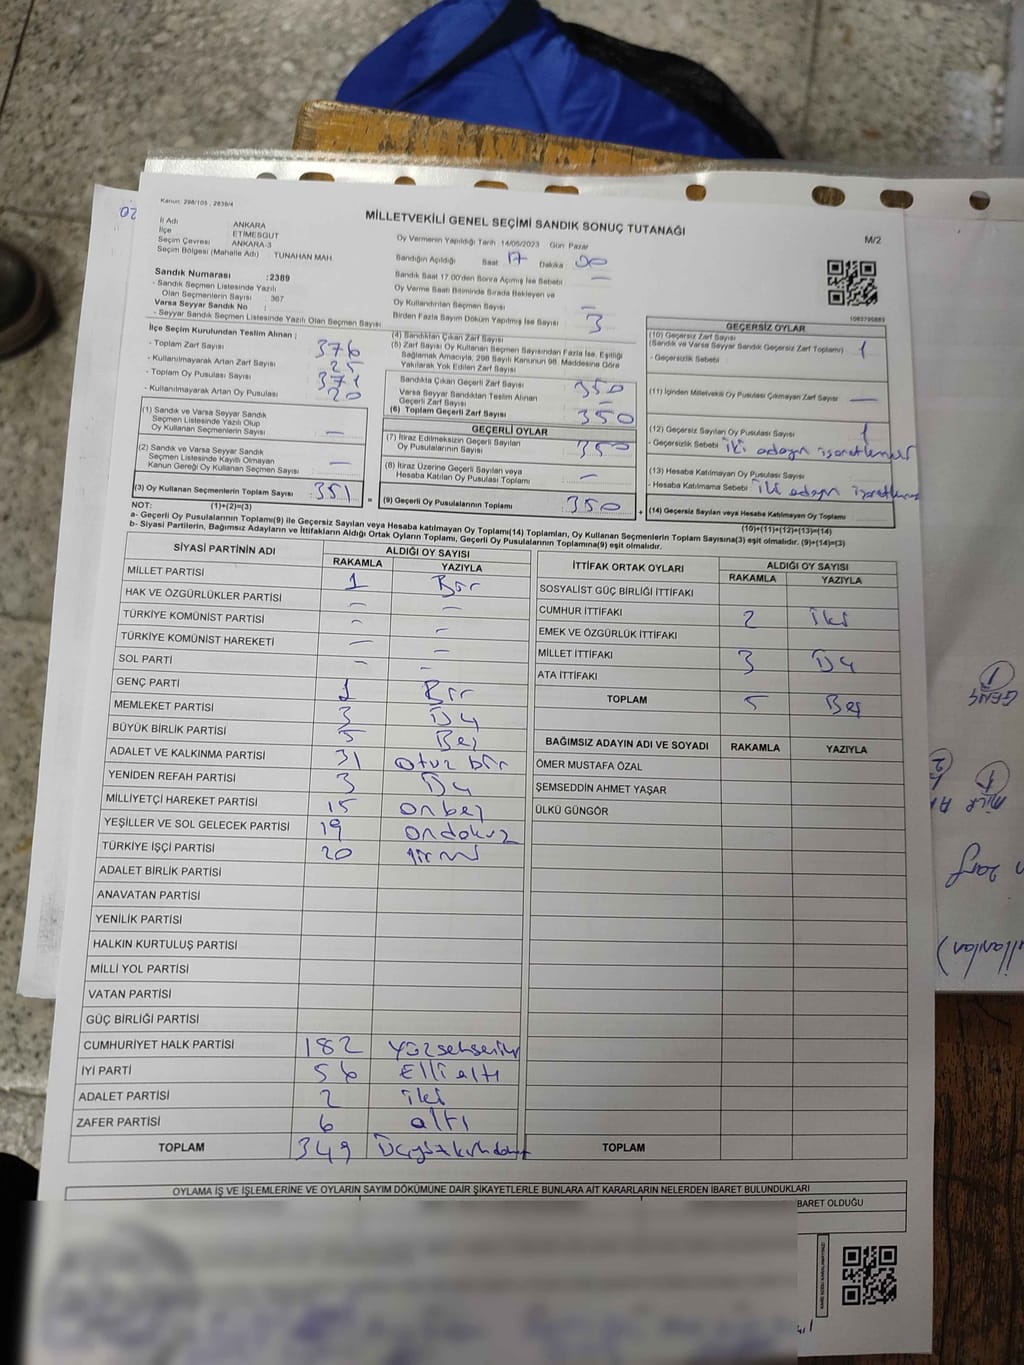 Kanun: 298/105 , 2839/4
MİLLETVEKİLİ GENEL SEÇİMİ SANDIK SONUÇ TUTANAĞI
M/2
İl Adı ANKARA
İlçe ETİMESGUT
Seçim Çevresi ANKARA-3
Seçim Bölgesi (Mahalle Adı) : TUNAHAN MAH.
Oy Vermenin Yapıldığı Tarih 14/05/2023 Gün Pazar
Sandığın Açıldığı Saat 17 Dakika 00
Sandık Saat 17.00'den Sonra Açılmış İse Sebebi —
Oy Verme Saati Bitiminde Sırada Bekleyen ve
Oy Kullandırılan Seçmen Sayısı —
Birden Fazla Sayım Döküm Yapılmış İse Sayısı 3
Sandık Numarası :2389
- Sandık Seçmen Listesinde Yazılı
Olan Seçmenlerin Sayısı : 367
Varsa Seyyar Sandık No :
- Seyyar Sandık Seçmen Listesinde Yazılı Olan Seçmen Sayısı
İlçe Seçim Kurulundan Teslim Alınan ;
- Toplam Zarf Sayısı 376
- Kullanılmayarak Artan Zarf Sayısı 25
- Toplam Oy Pusulası Sayısı 371
- Kullanılmayarak Artan Oy Pusulası 20
(1) Sandık ve Varsa Seyyar Sandık
Seçmen Listesinde Yazılı Olup
Oy Kullanan Seçmenlerin Sayısı —
(2) Sandık ve Varsa Seyyar Sandık
Seçmen Listesinde Kayıtlı Olmayan
Kanun Gereği Oy Kullanan Seçmen Sayısı —
(3) Oy Kullanan Seçmenlerin Toplam Sayısı 351 =
(1)+(2)=(3)
(4) Sandıktan Çıkan Zarf Sayısı
(5) Zarf Sayısı Oy Kullanan Seçmen Sayısından Fazla İse, Eşitliği
Sağlamak Amacıyla, 298 Sayılı Kanunun 98. Maddesine Göre
Yakılarak Yok Edilen Zarf Sayısı
Sandıkta Çıkan Geçerli Zarf Sayısı 350
Varsa Seyyar Sandıktan Teslim Alınan
Geçerli Zarf Sayısı —
(6) Toplam Geçerli Zarf Sayısı 350
GEÇERLİ OYLAR
(7) İtiraz Edilmeksizin Geçerli Sayılan
Oy Pusulalarının Sayısı 350
(8) İtiraz Üzerine Geçerli Sayılan veya
Hesaba Katılan Oy Pusulası Toplamı —
(9) Geçerli Oy Pusulalarının Toplamı 350 +
GEÇERSİZ OYLAR
(10) Geçersiz Zarf Sayısı
(Sandık ve Varsa Seyyar Sandık Geçersiz Zarf Toplamı) 1
- Geçersizlik Sebebi
(11) İçinden Milletvekili Oy Pusulası Çıkmayan Zarf Sayısı —
(12) Geçersiz Sayılan Oy Pusulası Sayısı 1
- Geçersizlik Sebebi iki adayın işaretlenmesi
(13) Hesaba Katılmayan Oy Pusulası Sayısı
- Hesaba Katılmama Sebebi iki adayın
(14) Geçersiz Sayılan veya Hesaba Katılmayan Oy Toplamı
(10)+(11)+(12)+(13)=(14)
NOT:
a- Geçerli Oy Pusulalarının Toplamı(9) ile Geçersiz Sayılan veya Hesaba katılmayan Oy Toplamı(14) Toplamları, Oy Kullanan Seçmenlerin Toplam Sayısına(3) eşit olmalıdır. (9)+(14)=(3)
b- Siyasi Partilerin, Bağımsız Adayların ve İttifakların Aldığı Ortak Oyların Toplamı, Geçerli Oy Pusulalarının Toplamına(9) eşit olmalıdır.
SİYASİ PARTİNİN ADI ALDIĞI OY SAYISI
RAKAMLA YAZIYLA
MİLLET PARTİSİ 1 Bir
HAK VE ÖZGÜRLÜKLER PARTİSİ — —
TÜRKİYE KOMÜNİST PARTİSİ — —
TÜRKİYE KOMÜNİST HAREKETİ — —
SOL PARTİ — —
GENÇ PARTİ 1 Bir
MEMLEKET PARTİSİ 3 Üç
BÜYÜK BİRLİK PARTİSİ 5 Beş
ADALET VE KALKINMA PARTİSİ 31 otuz bir
YENİDEN REFAH PARTİSİ 3 Üç
MİLLİYETÇİ HAREKET PARTİSİ 15 onbeş
YEŞİLLER VE SOL GELECEK PARTİSİ 19 ondokuz
TÜRKİYE İŞÇİ PARTİSİ 20 yirmi
ADALET BİRLİK PARTİSİ
ANAVATAN PARTİSİ
YENİLİK PARTİSİ
HALKIN KURTULUŞ PARTİSİ
MİLLİ YOL PARTİSİ
VATAN PARTİSİ
GÜÇ BİRLİĞİ PARTİSİ
CUMHURİYET HALK PARTİSİ 182 yüzsekseniki
İYİ PARTİ 56 Elli altı
ADALET PARTİSİ 2 iki
ZAFER PARTİSİ 6 altı
TOPLAM 349 Üçyüzkırkdokuz
İTTİFAK ORTAK OYLARI ALDIĞI OY SAYISI
RAKAMLA YAZIYLA
SOSYALİST GÜÇ BİRLİĞİ İTTİFAKI
CUMHUR İTTİFAKI 2 iki
EMEK VE ÖZGÜRLÜK İTTİFAKI
MİLLET İTTİFAKI 3 Üç
ATA İTTİFAKI
TOPLAM 5 Beş
BAĞIMSIZ ADAYIN ADI VE SOYADI RAKAMLA YAZIYLA
ÖMER MUSTAFA ÖZAL
ŞEMSEDDİN AHMET YAŞAR
ÜLKÜ GÜNGÖR
TOPLAM
OYLAMA İŞ VE İŞLEMLERİNE VE OYLARIN SAYIM DÖKÜMÜNE DAİR ŞİKAYETLERLE BUNLARA AİT KARARLARIN NELERDEN İBARET BULUNDUKLARI
BARET OLDUĞU
GENÇ 1